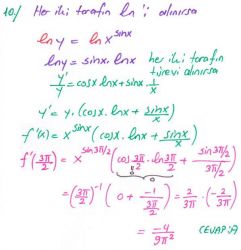 10/ Her iki tarafın ln 'i alınırsa
ln y = ln x^sinx
ln y = sinx. ln x her iki tarafın türevi alınırsa
y'/y = cosx lnx + sinx. 1/x
y' = y. (cosx. lnx + sinx/x)
f'(x) = x^sinx (cosx. lnx + sinx/x)
f'(3π/2) = x^sin3π/2 (cos 3π/2 . ln 3π/2 + sin3π/2 / 3π/2)
0
= (3π/2)^-1 (0 + -1 / 3π/2) = 2/3π . (-2/3π)
= -4/9π² CEVAP: A